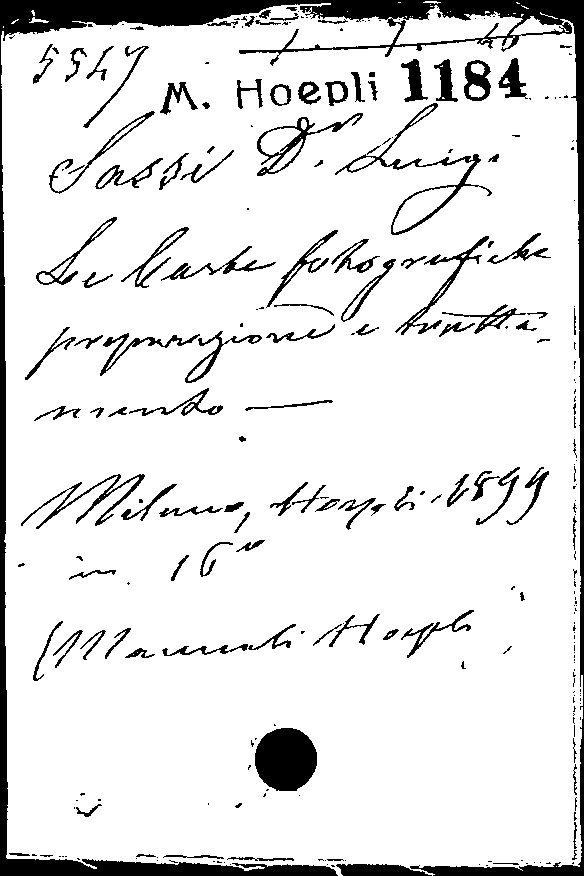 5547 1. 7. 46
M. Hoepli 1184
Sassi Dr. Luigi
Le Carte fotografiche
preparazione e tratta-
mento —
Milano, Hoepli. 1899
in 16º
(Manuali Hoepli